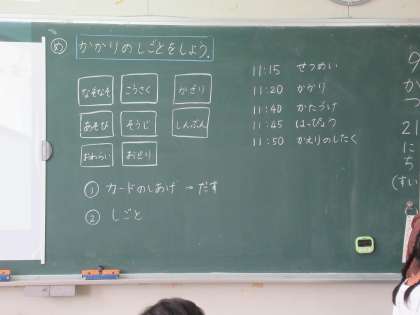 め かかりのしごとをしよう。
なぞなぞ こうさく かざり
あそび そうじ しんぶん
おわらい おどり
① カードのしあげ → だす
② しごと
11:15 せつめい
11:20 かかり
11:40 かたづけ
11:45 はっぴょう
11:50 かえりのしたく
9
か
つ
21
に
ち
(すい